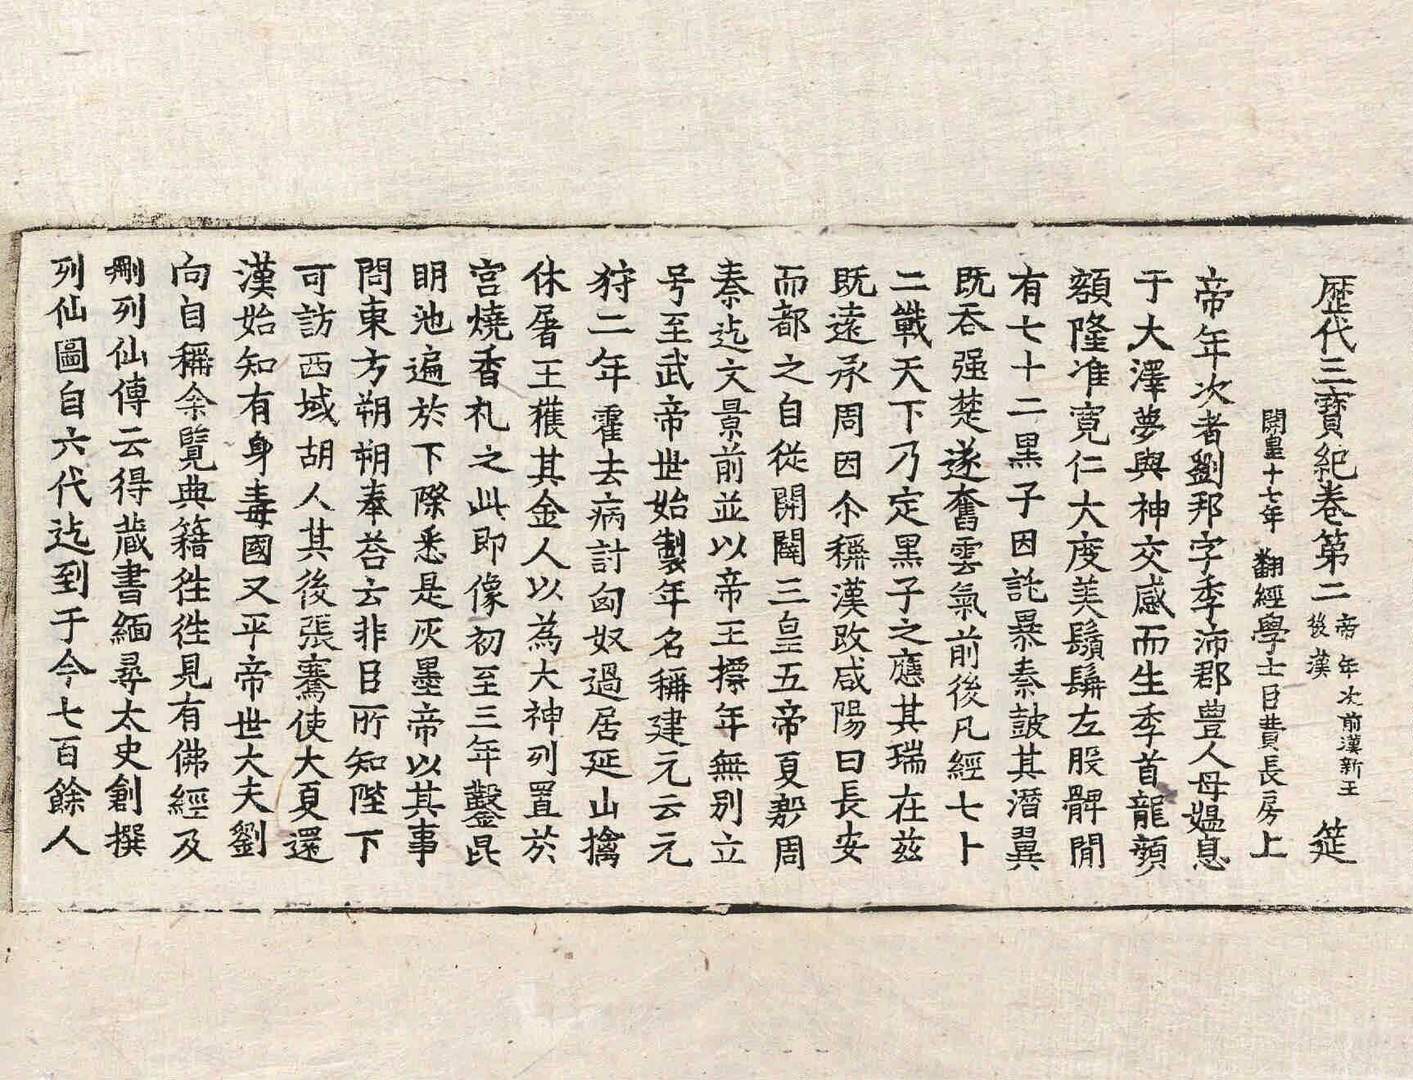 歷代三寶紀卷第二 帝年次前漢新王後漢 筵
開皇十七年翻經學士臣費長房上
帝年次者劉邦字季沛郡豊人母媼息
于大澤夢與神交感而生季首龍顔
額隆准寛仁大度美鬚髯左股髀閒
有七十二黒子因託暴秦詖其潛翼
既吞强楚遂奮雲氣前後凡經七十
二戰天下乃定黒子之應其瑞在兹
既遠承周因尒稱漢改咸陽曰長安
而都之自從開闢三皇五帝夏郪周
秦迄文景前並以帝王摽年無別立
号至武帝世始製年名稱建元云元
狩二年霍去病討匈奴過居延山擒
休屠王獲其金人以為大神列置於
宮燒香礼之此即像初至三年鑿昆
眀池遍於下際悉是灰墨帝以其事
問東方朔朔奉荅云非臣所知陛下
可訪西域胡人其後張騫使大夏還
漢始知有身毒國又平帝世大夫劉
向自稱余覽典籍徃徃見有佛經及
刪列仙傳云得藏書緬尋太史創撰
列仙圖自六代迄到于今七百餘人